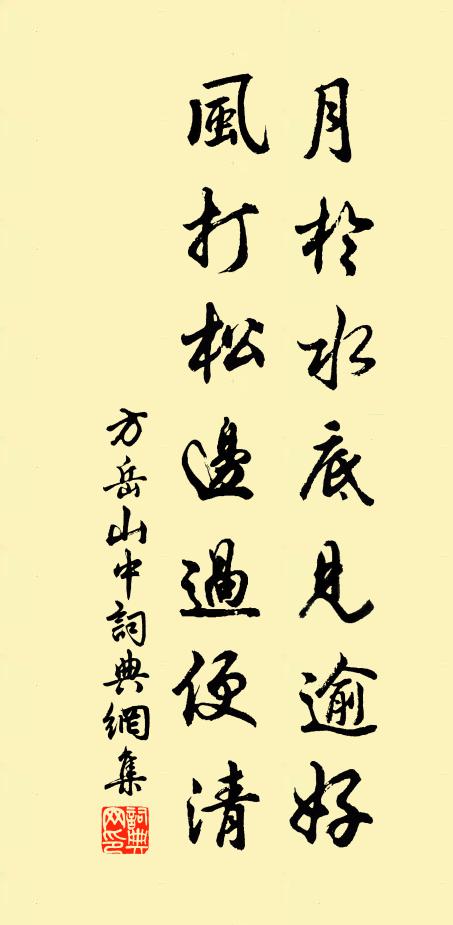 月於水底見逾好
風打松邊過便清
方岳山中詞典網集
詞典
网印